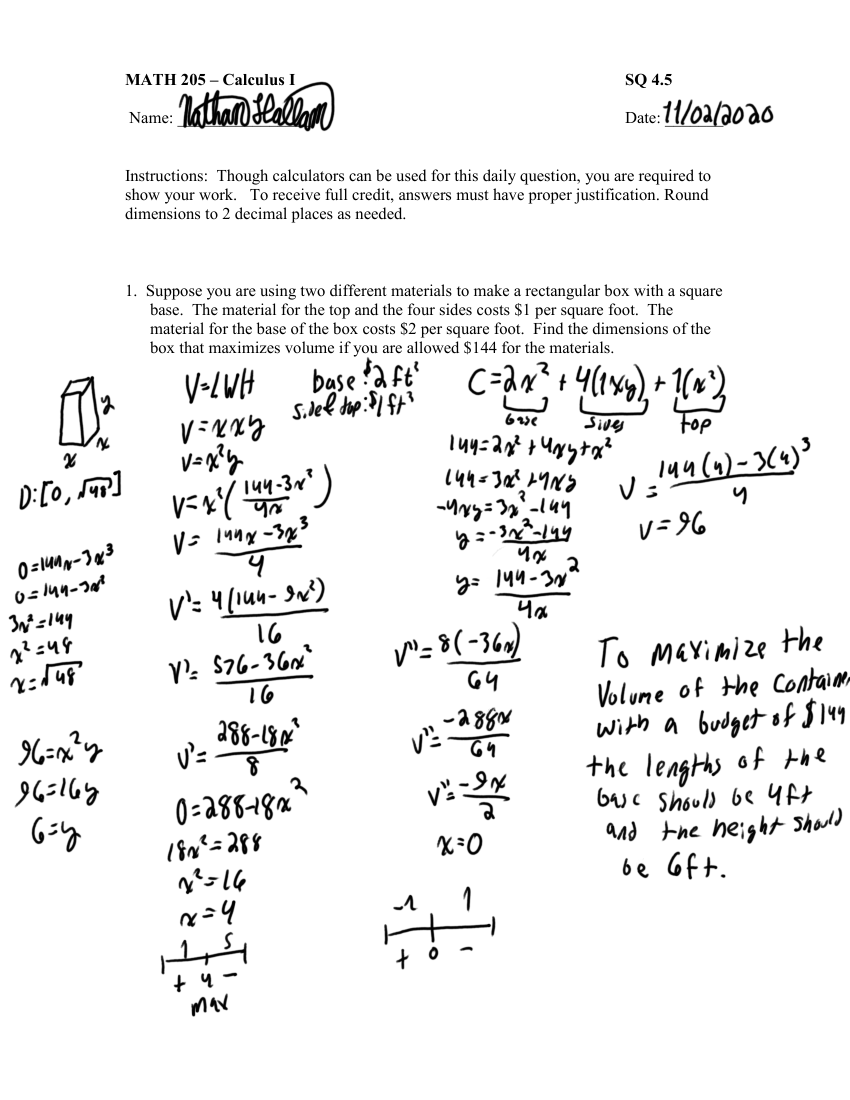 MATH 205 – Calculus I
SQ 4.5
Name: Nathan Hallam
Date: 11/02/2020
Instructions: Though calculators can be used for this daily question, you are required to
show your work. To receive full credit, answers must have proper justification. Round
dimensions to 2 decimal places as needed.
1. Suppose you are using two different materials to make a rectangular box with a square
base. The material for the top and the four sides costs $1 per square foot. The
material for the base of the box costs $2 per square foot. Find the dimensions of the
box that maximizes volume if you are allowed $144 for the materials.
y
x
x
D:[0, √48]
0=144x-3x³
0=144-3x²
3x²=144
x²=48
x=√48
96=x²y
96=16y
6=y
V=LWH
V=xxy
V=x²y
V=x²((144-3x²)/4x)
V=(144x-3x³)/4
V'=4(144-9x²)/16
V'=(576-36x²)/16
V'=(288-18x²)/8
0=288-18x²
18x²=288
x²=16
x=4
1 5
+ 4 -
max
base: $2 ft²
side & top: $1 ft²
C=2x²+4(1xy)+1(x²)
base sides top
144=2x²+4xy+x²
144=3x²+4xy
-4xy=3x²-144
y=-(3x²-144)/4x
y=(144-3x²)/4x
V''=8(-36x)/64
V''=-288x/64
V''=-9x/2
x=0
-1 1
+ 0 -
V=(144(4)-3(4)³)/4
V=96
To maximize the
volume of the Contain
with a budget of $144
the lengths of the
base should be 4ft
and the height should
be 6ft.